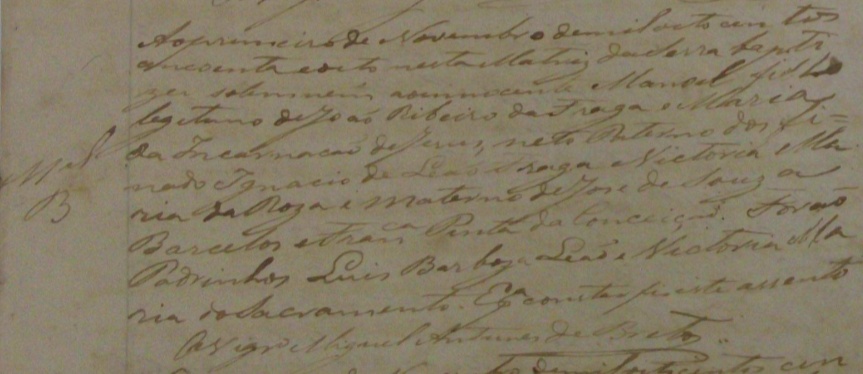 Ao primeiro de Novembro de mil oito cen tos
cincoenta e oito nesta Matriz da Serra bapti
zei solemnem ao innocente Manoel filho
legitimo de João Ribeiro da Fraga e Maria
da Incarnação de Jesus, neto Paterno dos fi=
Mel
nado Ignacio de Leão Fraga e Victoria Ma
B
ria da Roza e materno de Jose de Souza
Barcelos e Franca Pinta da Conceição. Forão
Padrinhos Luis Barboza Leão e Victoria Ma
ria do Sacramento. E pa constar fiz este assento
O Vigro Miguel Antunes de Brito
de mil oito centos cin